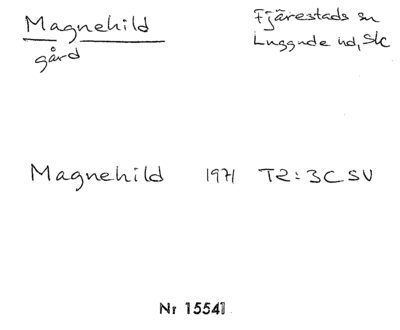 Magnehild
gård
Fjärestads sn
Luggude hd, Sk
Magnehild 1971 T2: 3C SV
Nr 15541